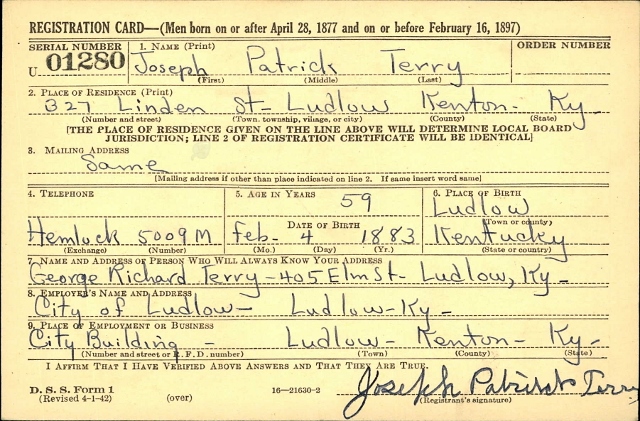 REGISTRATION CARD—(Men born on or after April 28, 1877 and on or before February 16, 1897)
SERIAL NUMBER 1. NAME (Print) ORDER NUMBER
U 01280 Joseph Patrick Terry
(First) (Middle) (Last)
2. PLACE OF RESIDENCE (Print)
327 Linden St- Ludlow Kenton- Ky-
(Number and street) (Town, township, village, or city) (County) (State)
[THE PLACE OF RESIDENCE GIVEN ON THE LINE ABOVE WILL DETERMINE LOCAL BOARD
JURISDICTION; LINE 2 OF REGISTRATION CERTIFICATE WILL BE IDENTICAL]
3. MAILING ADDRESS
Same
[Mailing address if other than place indicated on line 2. If same insert word same]
4. TELEPHONE 5. AGE IN YEARS 59 6. PLACE OF BIRTH
Ludlow
DATE OF BIRTH (Town or county)
Hemlock 5009M Feb- 4 1883 Kentucky
(Exchange) (Number) (Mo.) (Day) (Yr.) (State or country)
7. NAME AND ADDRESS OF PERSON WHO WILL ALWAYS KNOW YOUR ADDRESS
George Richard Terry-405 Elm St- Ludlow, Ky-
8. EMPLOYER'S NAME AND ADDRESS
City of Ludlow- Ludlow-Ky-
9. PLACE OF EMPLOYMENT OR BUSINESS
City Building - Ludlow- Kenton- Ky-
(Number and street or R. F. D. number) (Town) (County) (State)
I AFFIRM THAT I HAVE VERIFIED ABOVE ANSWERS AND THAT THEY ARE TRUE.
D. S. S. Form 1
(Revised 4-1-42) (over) 16—21630-2 Joseph Patrick Terry
(Registrant's signature)